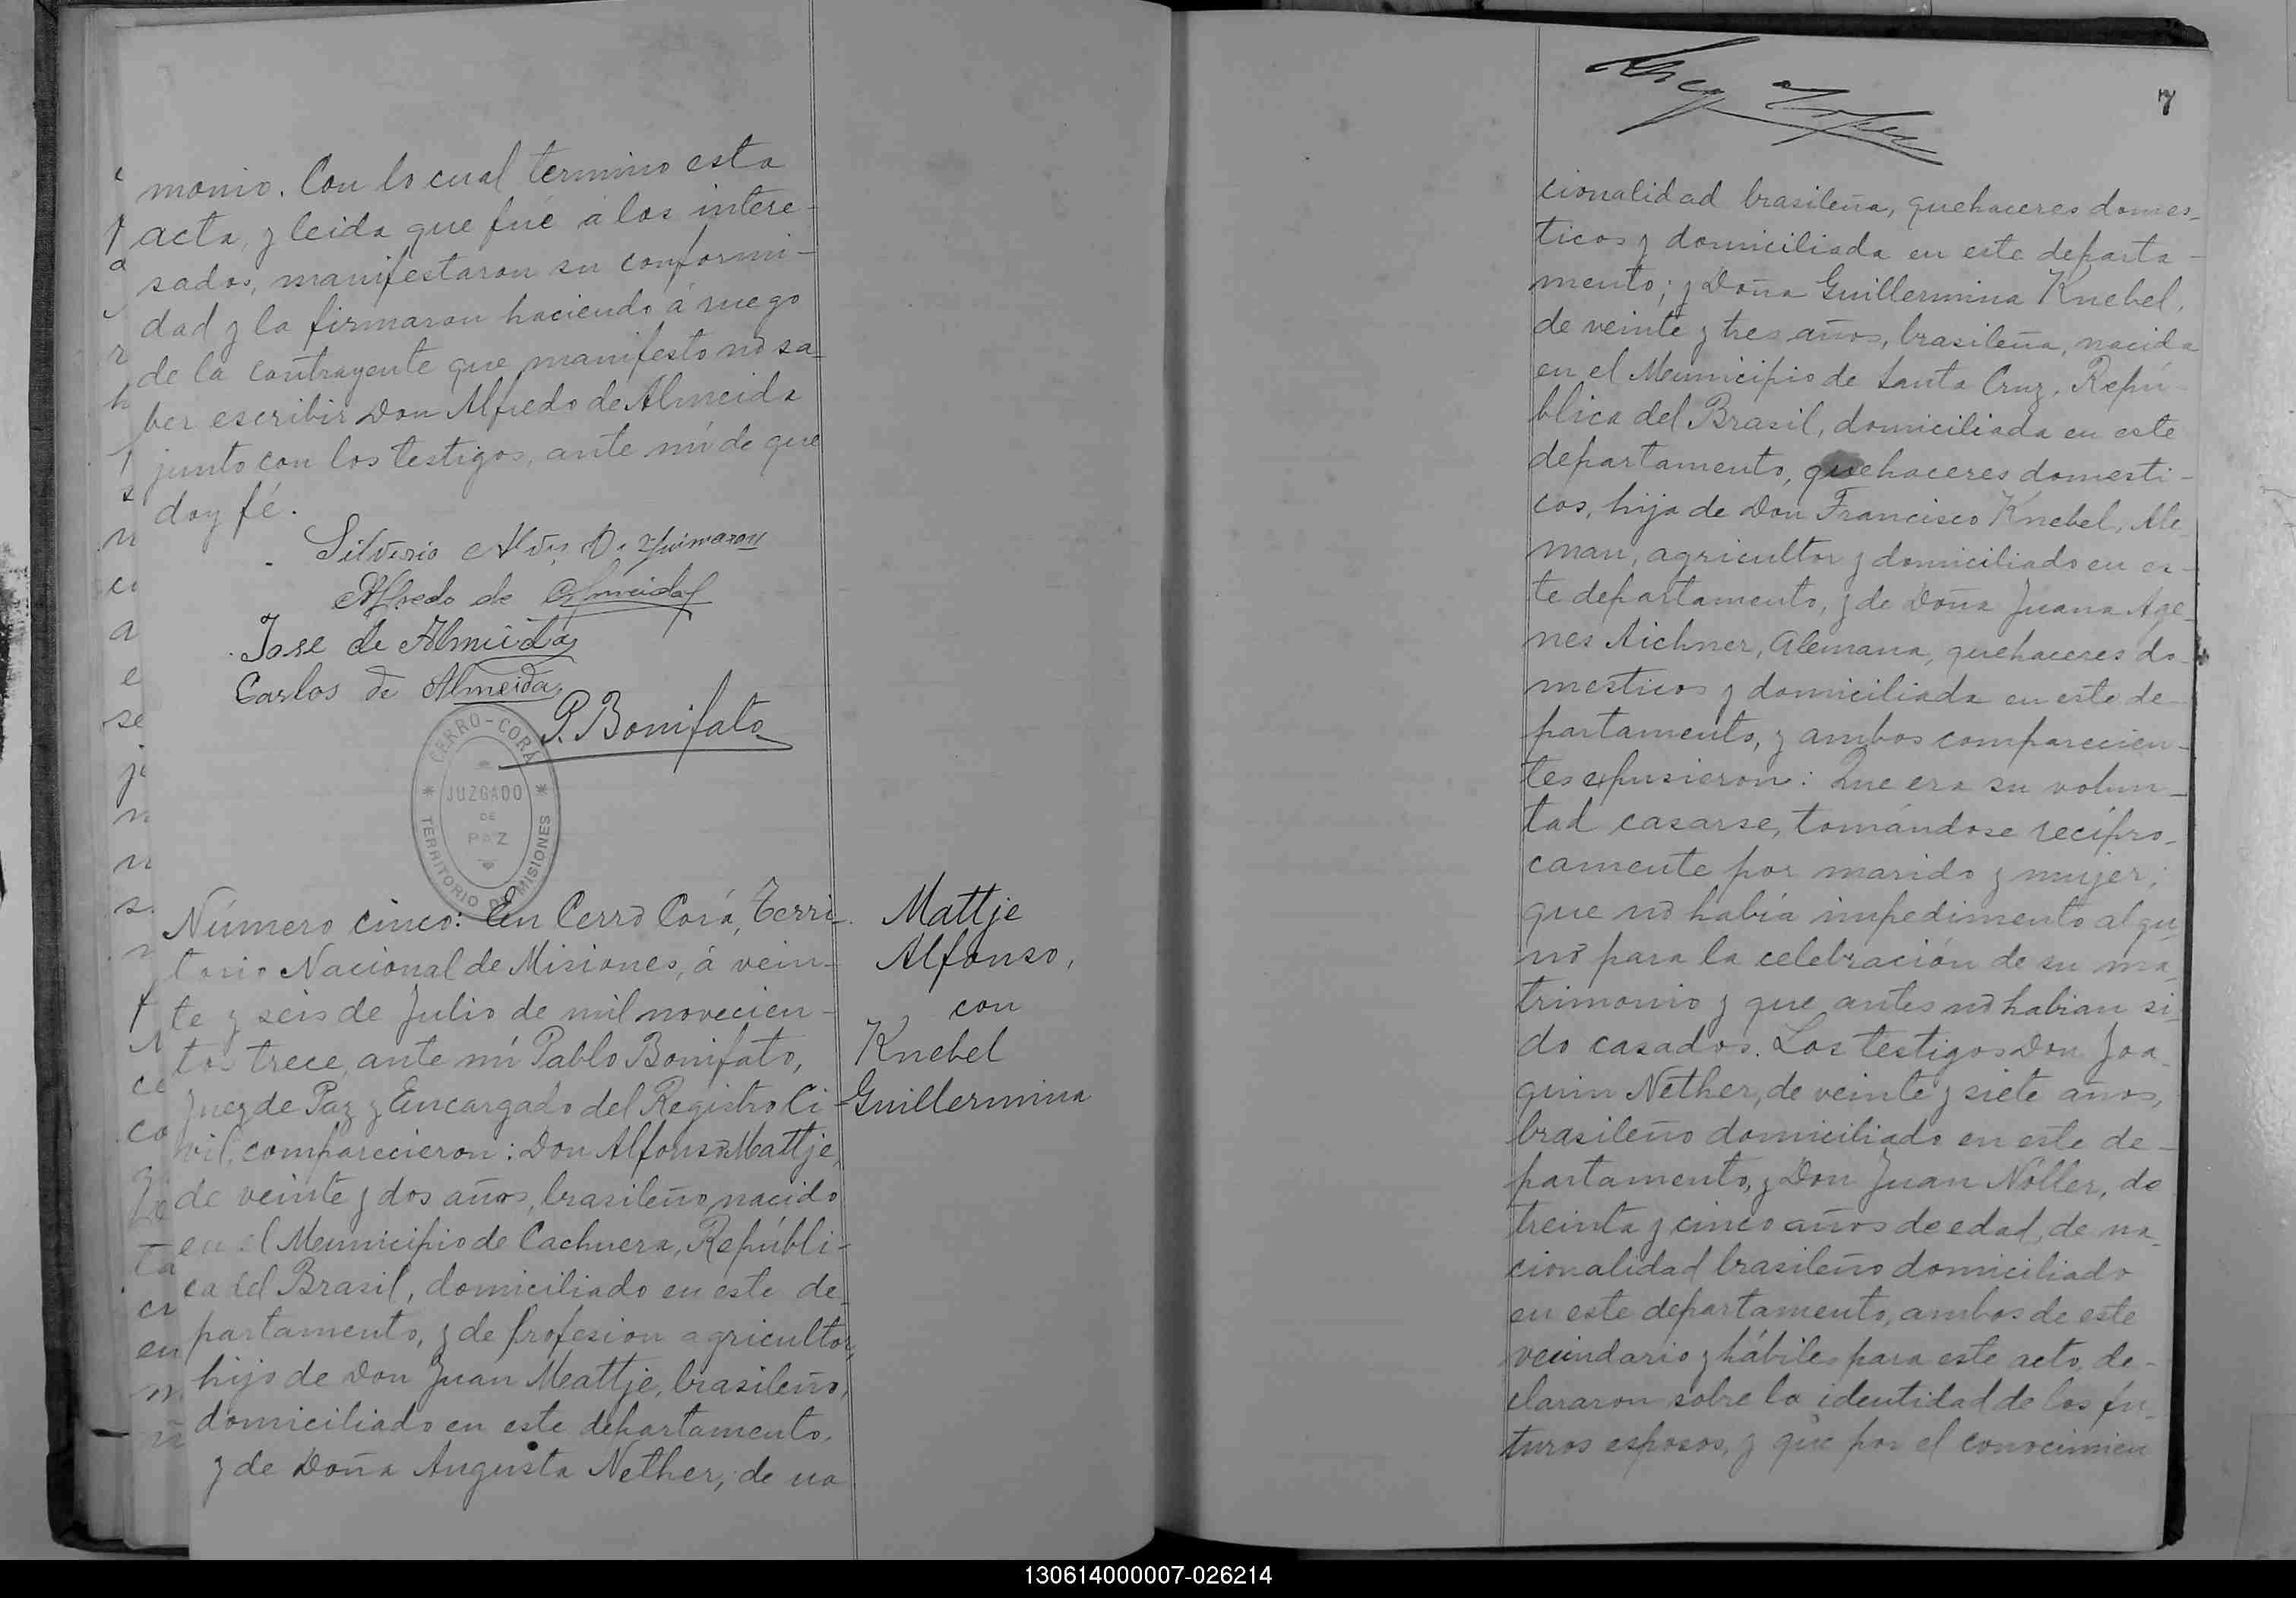 monio. Con lo cual termino esta
acta, y leida que fué á los intere-
sados, manifestaron su conformi-
dad y la firmaron haciendo á ruego
de la contrayente que manifesto no sa-
ber escribir Don Alfredo de Almeida
junto con los testigos, ante mi de que
doy fé.
Silverio Alves D. Guimaraes
Alfredo de Almeida
Jose de Almeida
Carlos de Almeida
P. Bonifato
CERRO-CORÁ
JUZGADO
DE
PAZ
TERRITORIO DE MISIONES
Número cinco: En Cerro Corá, Terri-
torio Nacional de Misiones, á vein-
te y seis de Julio de mil novecien-
tos trece, ante mí Pablo Bonifato,
Juez de Paz y Encargado del Registro Ci-
vil, comparecieron: Don Alfonso Mattje,
de veinte y dos años, brasileño, nacido
en el Municipio de Cachuera, Repúbli-
ca del Brasil, domiciliado en este de-
partamento, y de profesion agricultor,
hijo de Don Juan Mattje, brasileño,
domiciliado en este departamento,
y de Doña Augusta Nether, de na
Mattje
Alfonso,
con
Knebel
Guillermina
7
cionalidad brasileña, quehaceres domes-
ticos y domiciliada en este departa-
mento; y Doña Guillermina Knebel,
de veinte y tres años, brasileña, nacida
en el Municipio de Santa Cruz, Repú-
blica del Brasil, domiciliada en este
departamento, quehaceres domesti-
cos, hija de Don Francisco Knebel, Ale
man, agricultor y domiciliado en es-
te departamento, y de Doña Juana Age-
nes Aichner, Alemana, quehaceres do-
mesticos y domiciliada en este de-
partamento, y ambos comparecien-
tes expusieron: Que era su volun-
tad casarse, tomándose recipro-
camente por marido y mujer;
que no había impedimento algu-
no para la celebración de su ma-
trimonio y que antes no habian si-
do casados. Los testigos Don Joa-
quin Nether, de veinte y siete años,
brasileño domiciliado en este de-
partamento, y Don Juan Nöller, de
treinta y cinco años de edad, de na-
cionalidad brasileño domiciliado
en este departamento, ambos de este
vecindario y hábiles para este acto, de-
clararon sobre la identidad de los fu-
turos esposos, y que por el conocimien
130614000007-026214